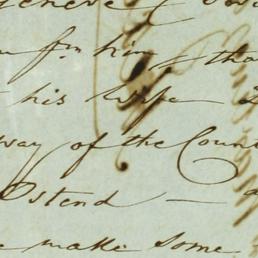 for him, tho
his wife
way of the Coun
Ostend — a
make some